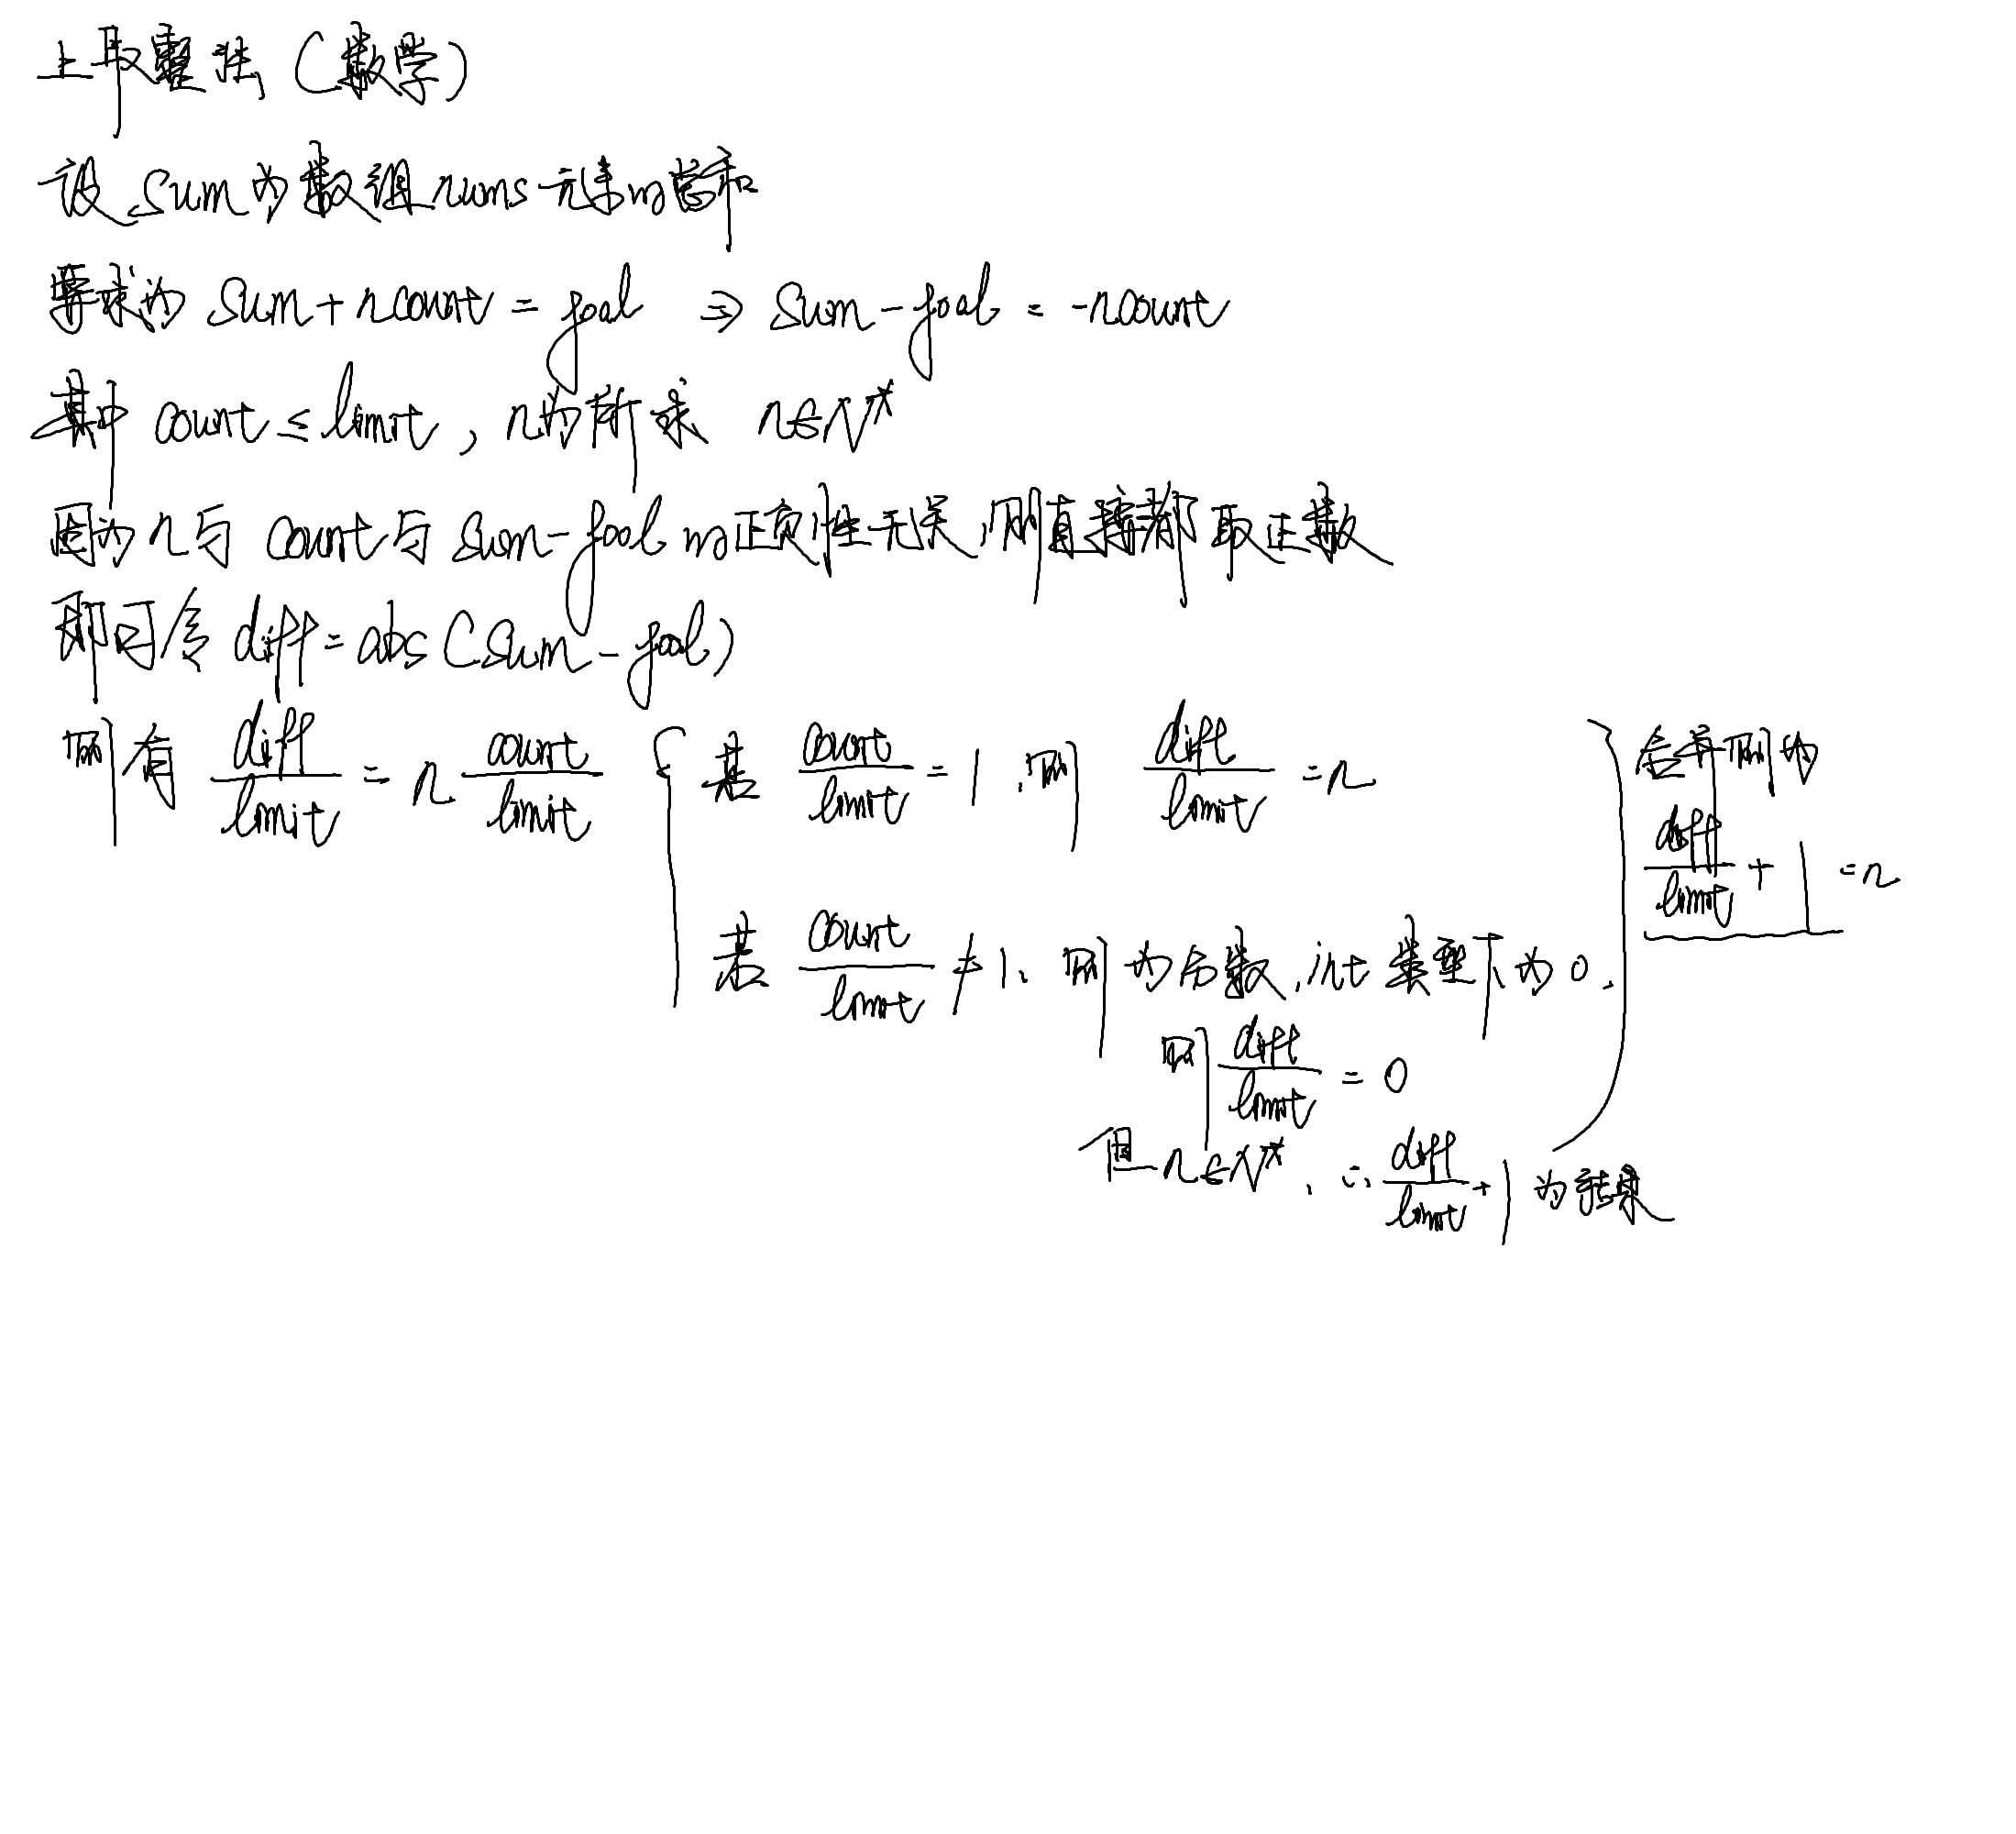 上取整法（数学）
设 sum 为数组 nums 元素的总和
要求为 sum + ncount = goal ⇒ sum - goal = -ncount
其中 count ≤ limit, n为所求 n∈N*
因为 n 与 count 与 sum-goal 的正负性无关，则直接都取正数
即可令 diff = abs(sum - goal)
则有 diff/limit = n count/limit { 若 count/limit = 1, 则 diff/limit = n
若 count/limit ≠ 1, 则为分数, int 类型下为 0,
则 diff/limit = 0
但 n∈N*, ∴ diff/limit + 1 为结果
合并则为
diff/limit + 1 = n